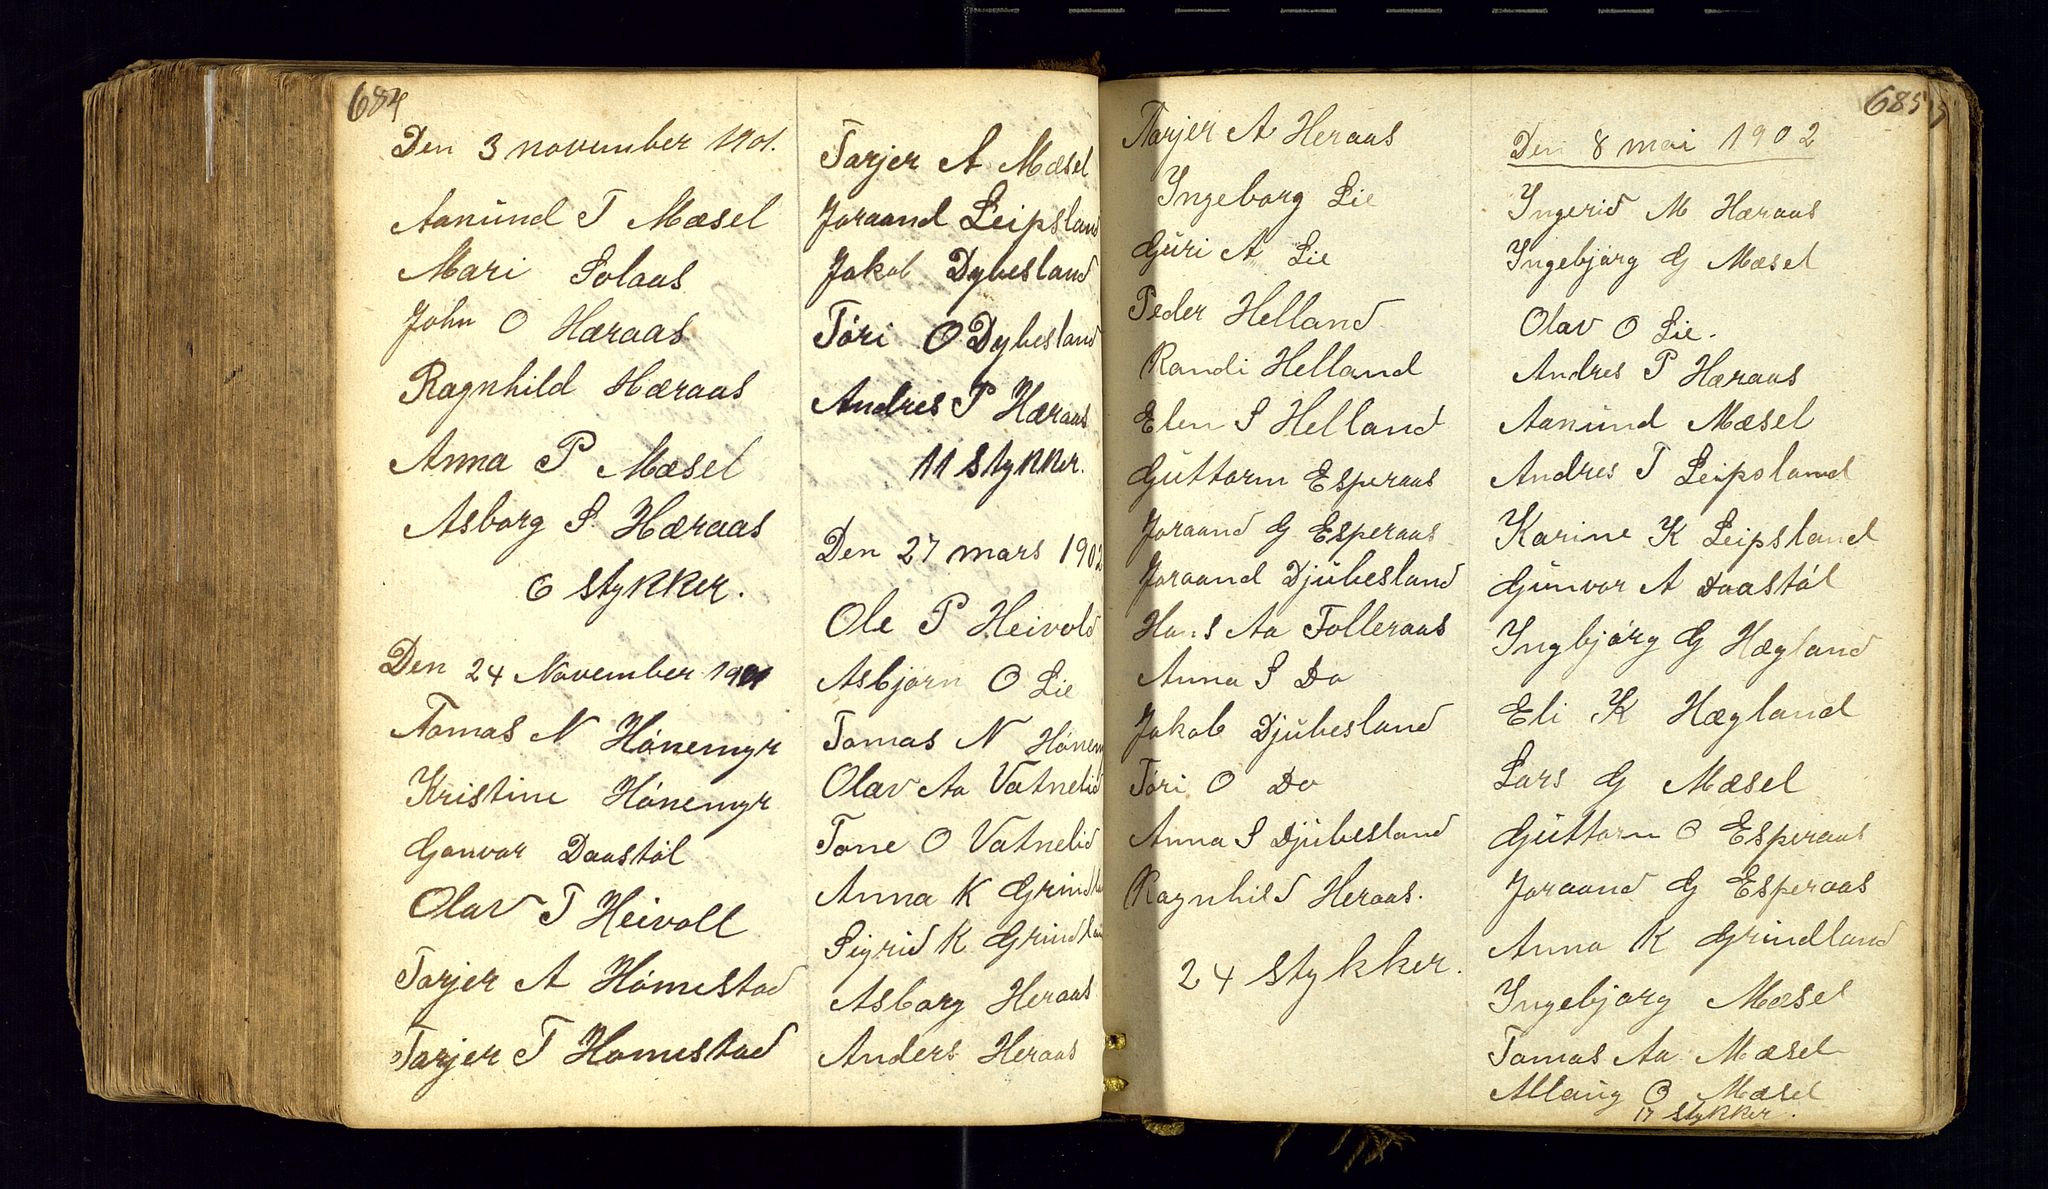 684
Den 3 november 1901.
Aanund T Mæsel
Mari Solaas
John O Hæraas
Ragnhild Hæraas
Anna P Mæsel
Asborg S. Hæraas
6 stykker.
Den 24 November 1901
Tomas N Hónemyr
Kristine Hónemyr
Gonvor Daastól
Olav T Heivoll
Tarjer A Hómestad
Tarjer T Homestad
Tarjer A Mæsel
Joraand Leipsland
Jakob Dybesland
Tóri O Dybesland
Andres P Hæraas
11 stykker.
Den 27 mars 1902
Ole P Heivold
Asbjørn O Lie
Tomas N Hónem
Olav Aa Vatnelid
Tone O Vatnelid
Anna K Grindla
Sigrid K Grindlan
Asborg Heraas
Anders Heraas
685
Tarjer A Heraas
Ingeborg Lie
Guri A Lie
Peder Helland
Randi Helland
Elen S Helland
Guttorm Esperaas
Joraand G Esperaas
Joraand Djubesland
Hans Aa Folleraas
Anna S Do
Jakob Djubesland
Tóri O Do
Anna S Djubesland
Ragnhild Heraas.
24 stykker.
Den 8 mai 1902
Ingerid M Hæraas
Ingebjørg G Mæsel
Olav O Lie.
Andres P Hæraas
Aanund Mæsel
Andres T Leipsland
Karine K Leipsland
Gunvor A Daastól
Ingbjórg G Hægland
Eli K Hægland
Lars G Mæsel
Guttorm O Esperaas
Joraand G Esperaas
Anna K Grindland
Ingebjørg Mæsel
Tomas Aa Mæsel
Allaug O Mæsel
17 stykker.